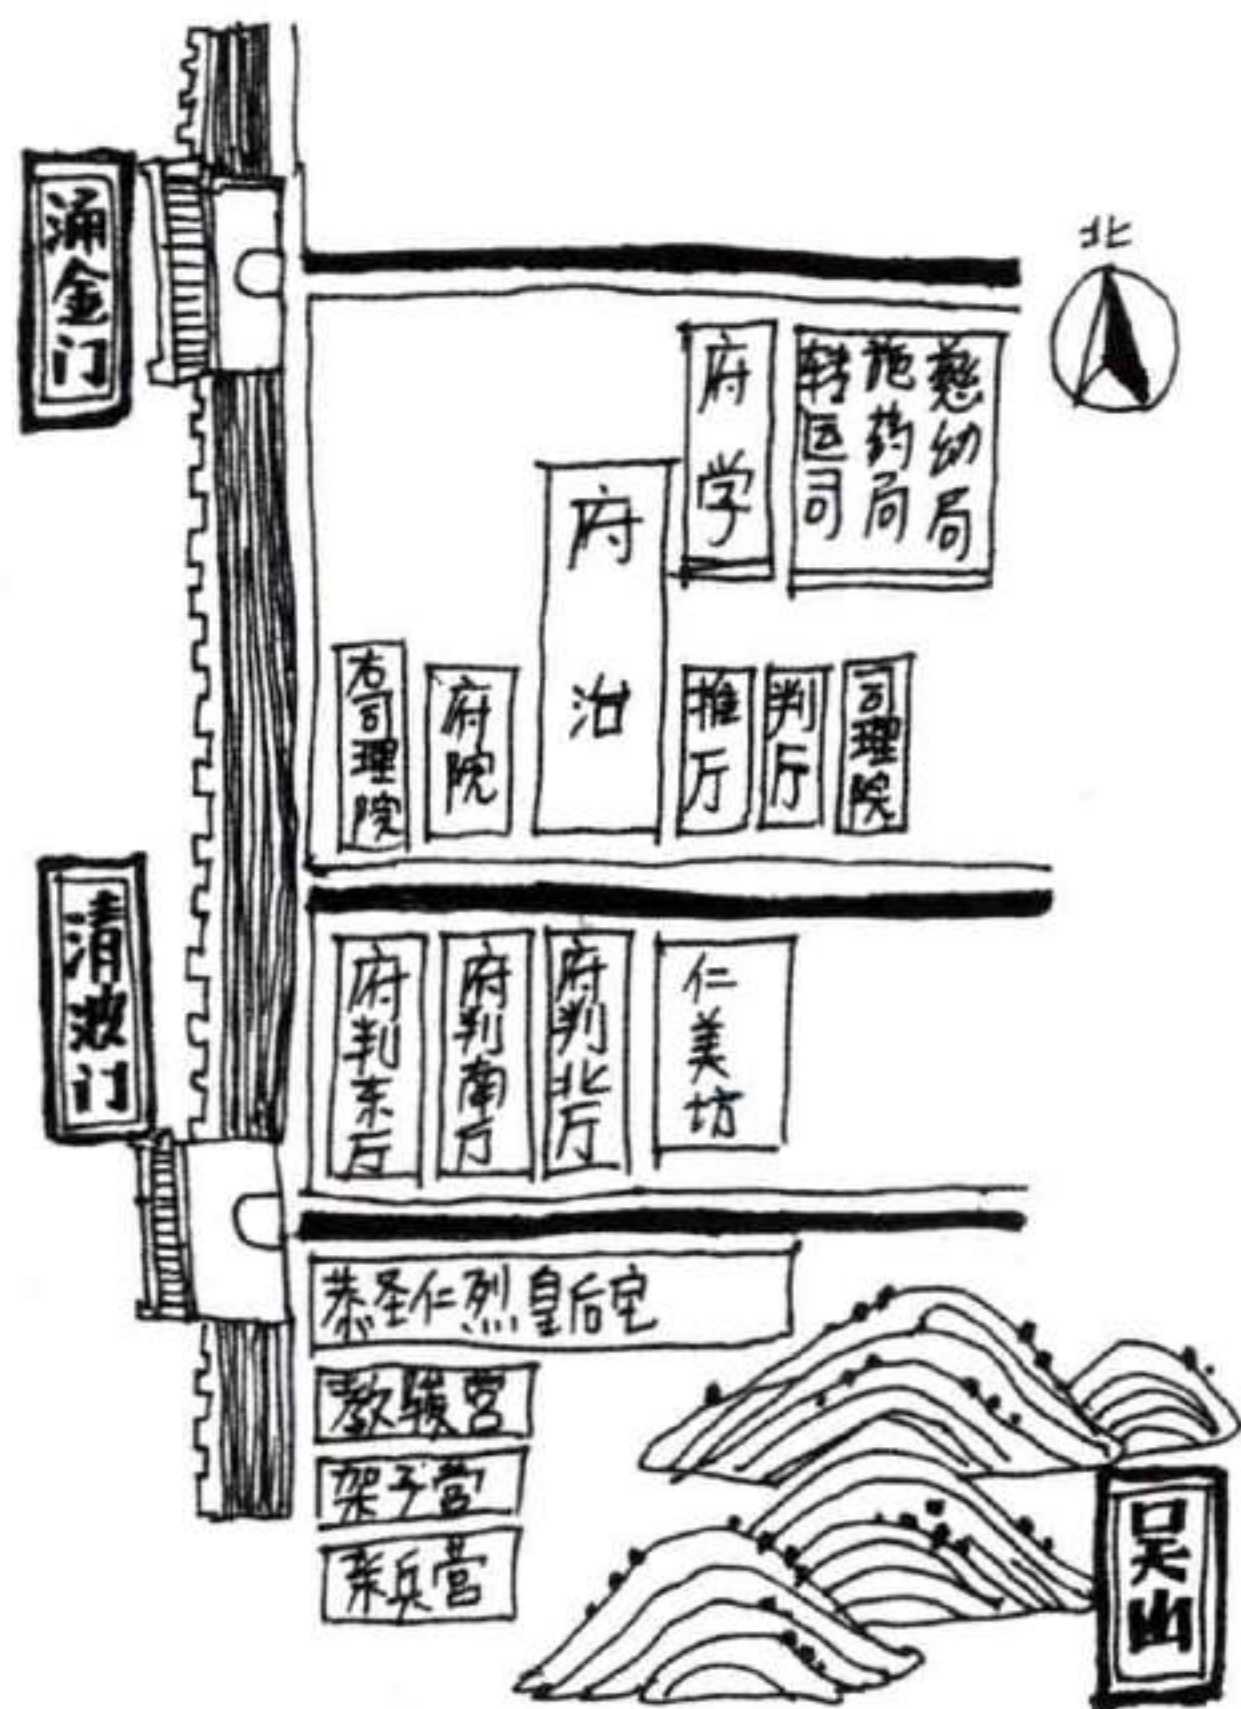 涌金门
北
府学
转运司
施药局
慈幼局
府治
右司理院
府院
推厅
判厅
司理院
清波门
府判东厅
府判南厅
府判北厅
仁美坊
恭圣仁烈皇后宅
教骏营
架子营
亲兵营
吴山